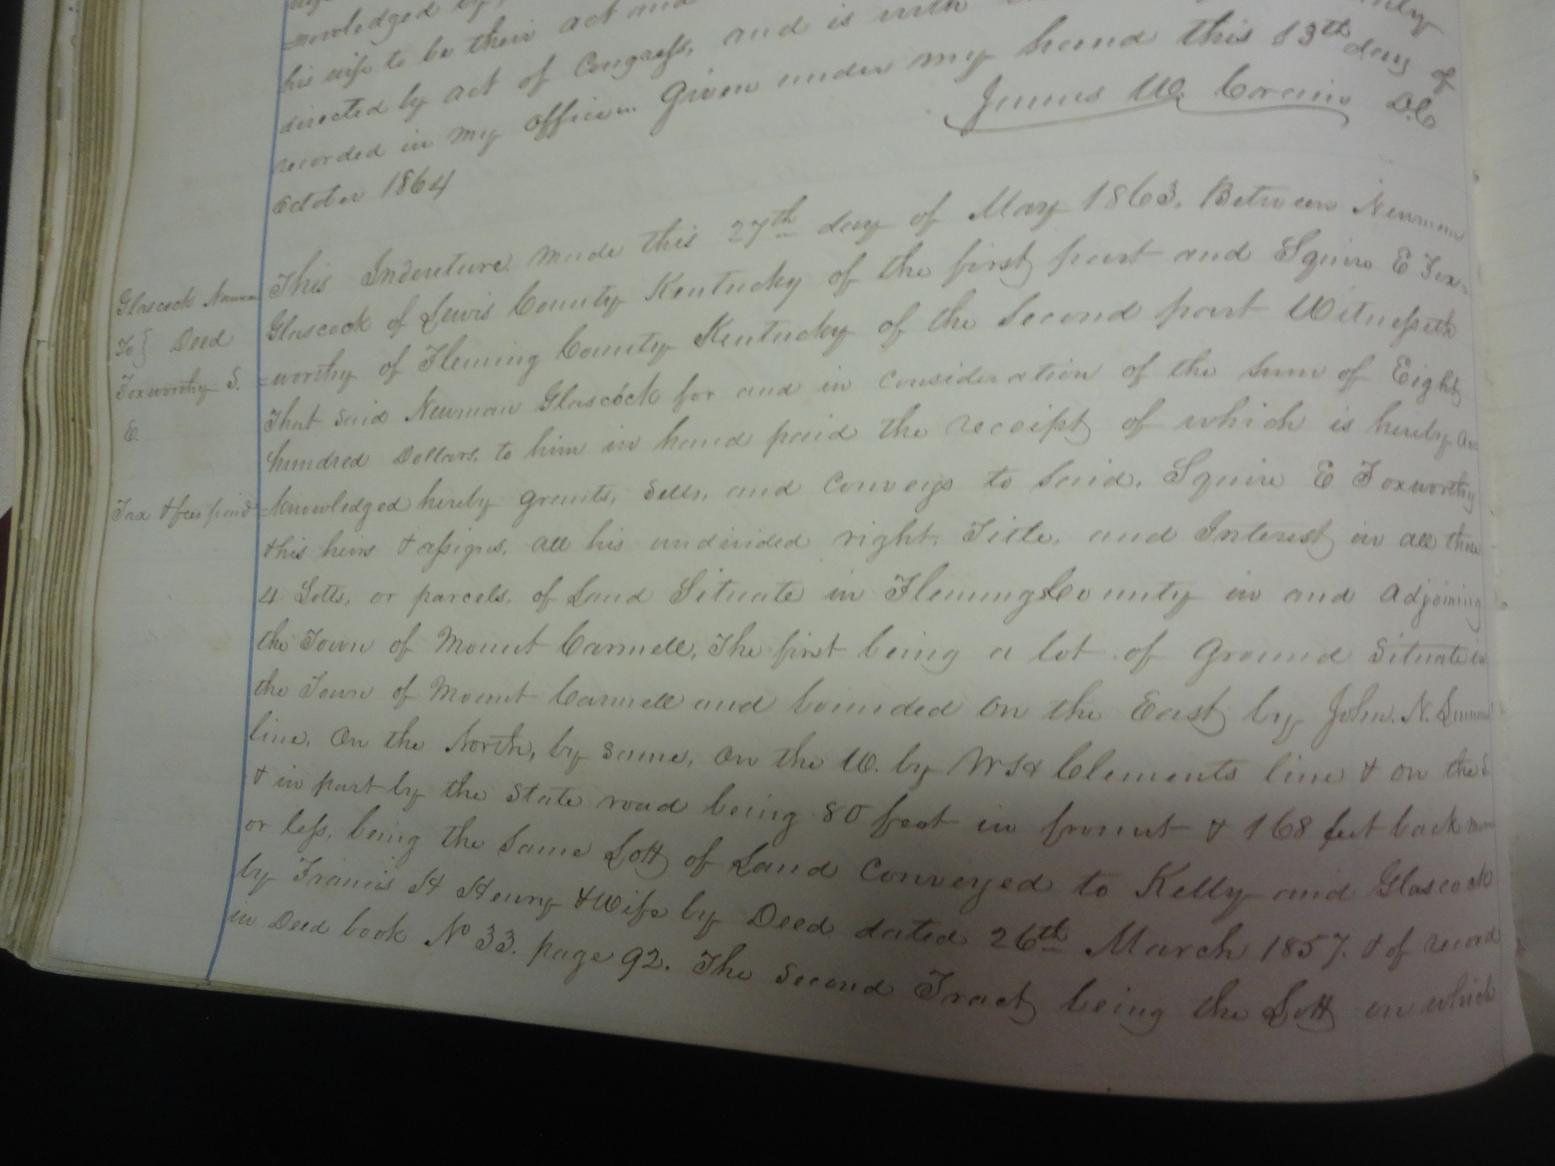 knowledged by
his wife to be their act and
directed by act of Congress, and is with
recorded in my office. Given under my hand this 13th day of
October 1864
James W. D.C
Glascock Newman
To } Deed
Foxworthy S.
E.
Tax & fees paid
This Indenture made this 27th day of May 1863. Between Newman
Glascock of Lewis County Kentucky of the first part and Squire E Fox-
=worthy of Fleming County Kentucky of the Second part Witnesseth
That said Newman Glascock for and in consideration of the sum of Eight
hundred Dollars. to him in hand paid the receipt of which is hereby ac
=knowledged hereby grants, sells, and conveys to said, Squire E Foxworthy
& his heirs & assigns, all his undivided right, Title, and Interest in all those
4 Lotts, or parcels, of Land Situate in Fleming County in and Adjoining
the Town of Mount Carmell, The first being a lot of Ground Situate in
the Town of Mount Carmell and bounded on the East by John. N.
line, On the North, by same, on the W. by Clements line & on the S.
& in part by the State road being 80 feet in frount & 168 feet back more
or less, being the same Lott of Land Conveyed to Kelly and Glascock
by Francis H Henry & Wife by Deed dated 26th March 1857. & of record
in Deed book No 33. page 92. The Second Tract being the Lott on which